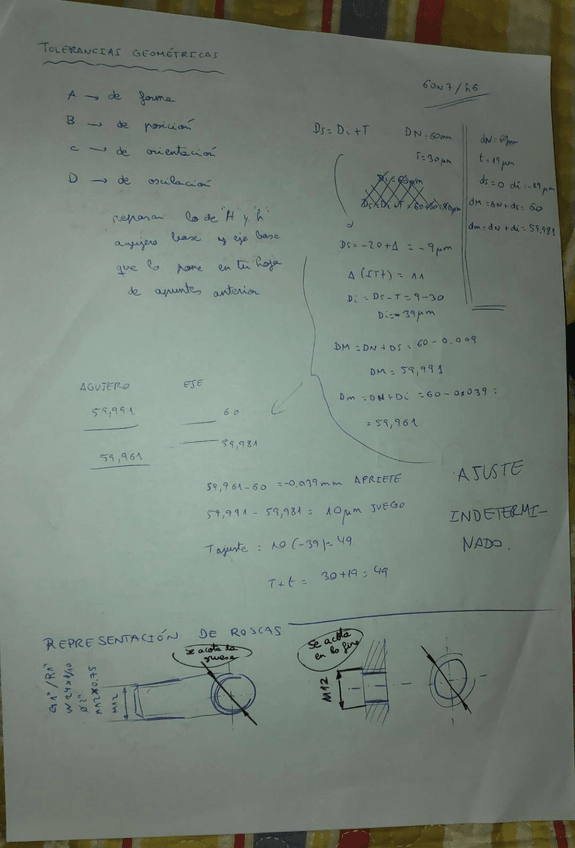 TOLERANCIAS GEOMÉTRICAS
A → de forma
B → de posición
C → de orientación
D → de oscilación
repasar lo de "H y h"
agujero base y eje base
que lo pone en tu hoja
de apuntes anterior
60N7/h6
Ds = Di + T DN = 60mm
T = 30µm
Ds = -20 + Δ = -9µm
Δ (IT7) = 11
Di = Ds - T = 9 - 30
Di = -39µm
DM = DN + DS = 60 - 0.009
DM = 59,991
Dm = DN + Di = 60 - 0.039 =
= 59,961
t = 19µm
ds = 0 di = -19µm
dM = dN + ds = 60
dm = dN + di = 59,981
AGUJERO EJE
59,991 60
59,961 59,981
59,961 - 60 = -0,039mm APRIETE
59,991 - 59,981 = 10µm JUEGO
T ajuste = 10 (-39) = 49
T + t = 30 + 19 = 49
AJUSTE
INDETERMI-
NADO.
REPRESENTACIÓN DE ROSCAS
se acota la
gruesa
se acota
en la fina
M12
M12x0.75
W 24x1/10
G1"/R1"
M12